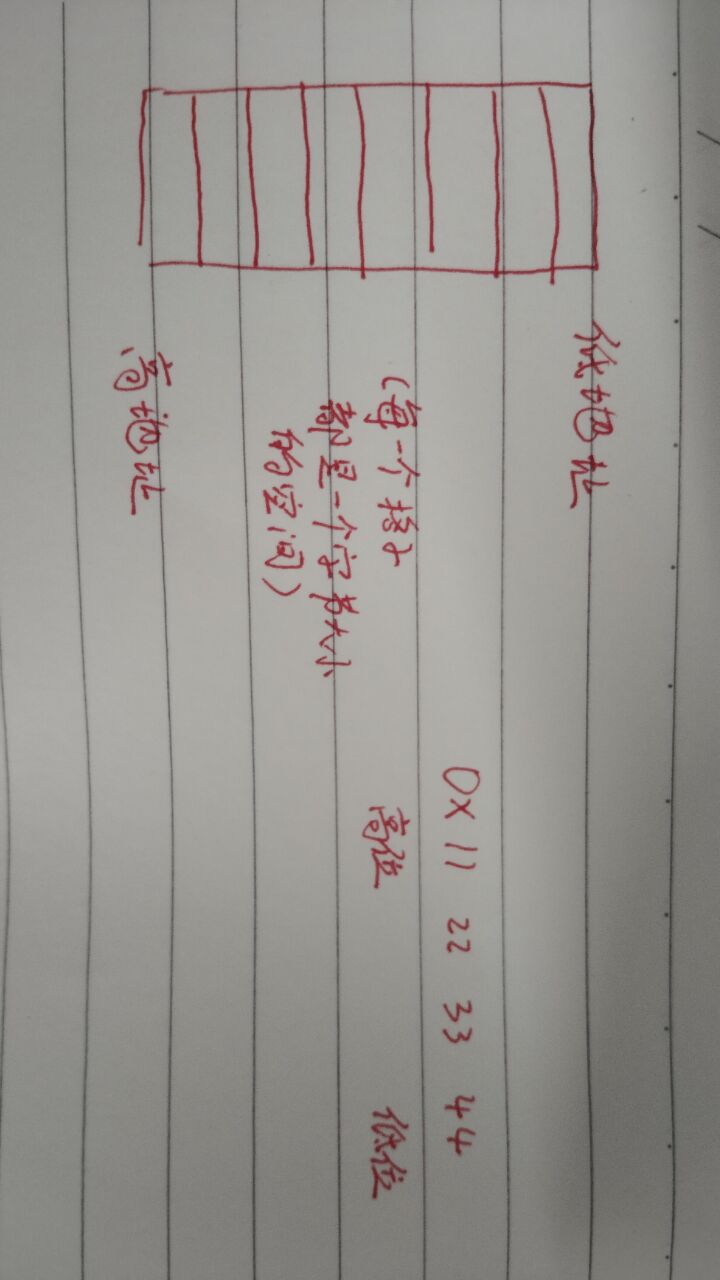 低地址
(每一个格子
都是一个字节大小
的空间)
高地址
0X 11 22 33 44
高位 低位